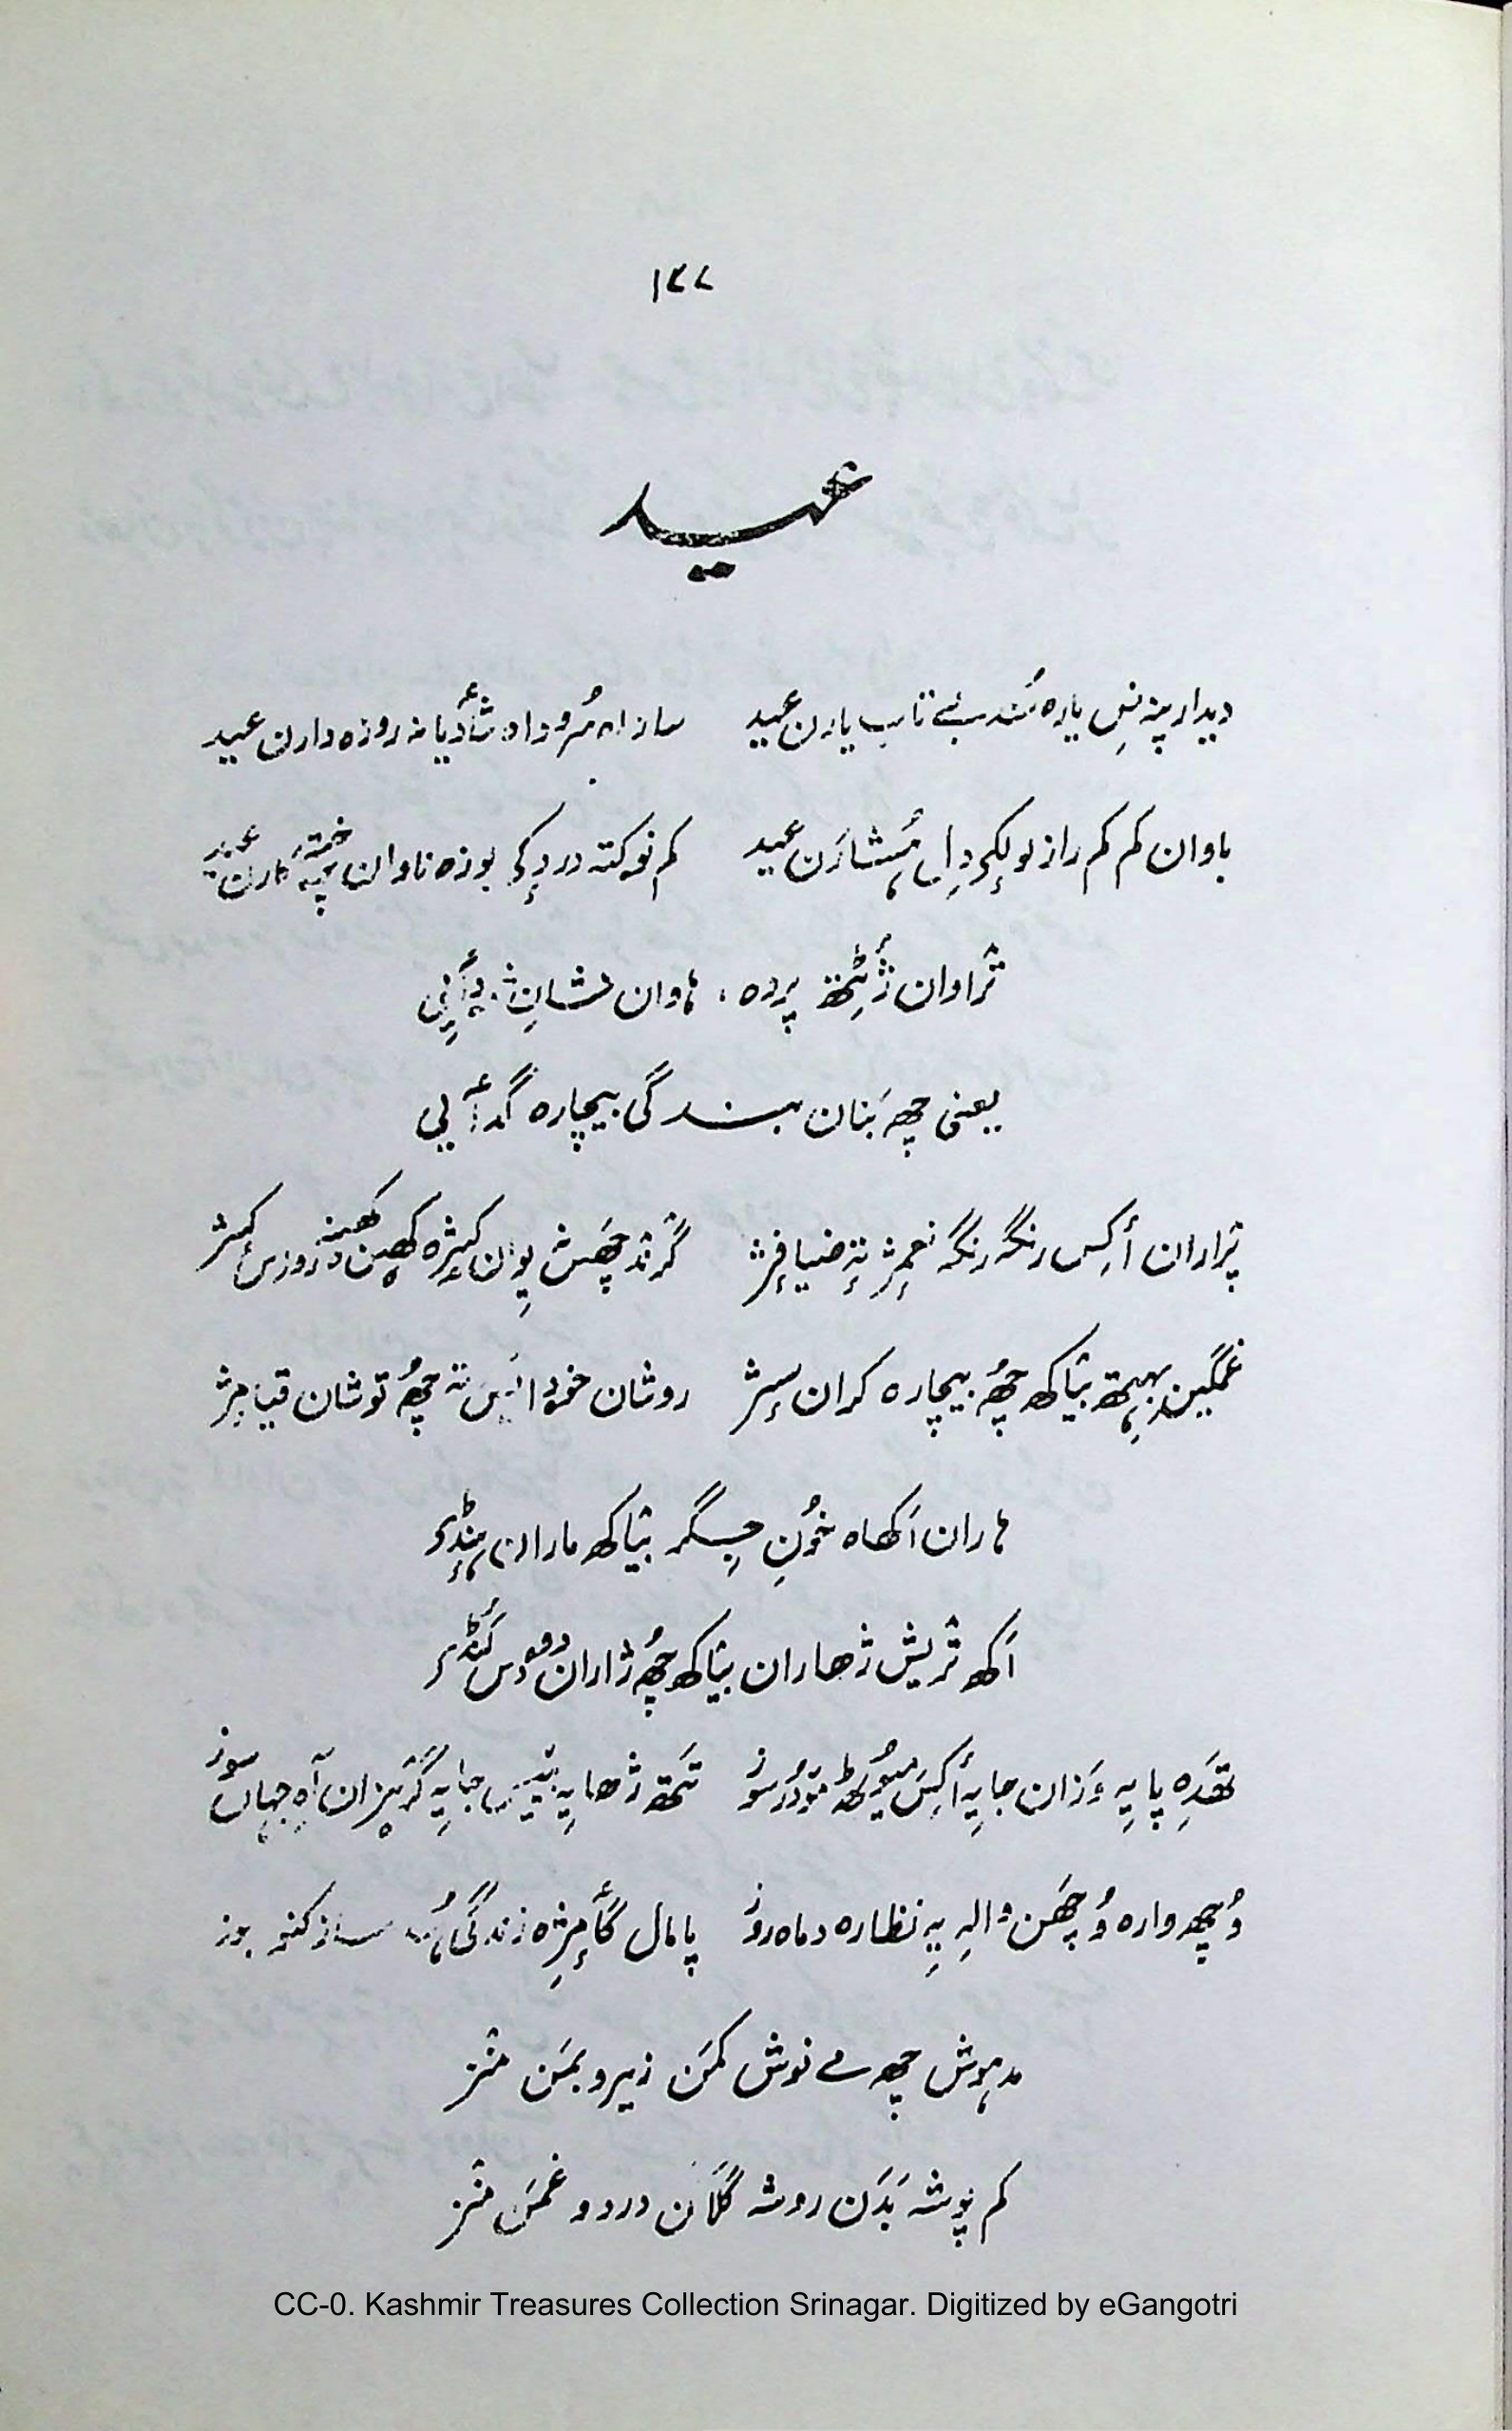 ۱۳۷
عید
دیدار پننِس یارہ سُند بے تاب یارن عید    ساز اہ سُرود اہ شأدیانہ روزہ دارن عید
باوان کم کم راز لولکۍ دِل ہُشارَن عید    کم نوکتہ دردٕکۍ بوزہ ناوان خستہٕ
تراوان ژٔٹِتھ پردہ، ہاوان
یعنی چھہِ بَنان بندگی بیچارہ گدأیی
پراران أکِس رنگہ رنگہ نعمٕژ تہٕ ضیافٕژ    گرند چھَش یِوان
غمگین بہِتھ بیاکھ چھُ بیچارہ کران سٕژ    روشان خۄدایس تہ چھُ توشان قیامٕژ
ہاران اَکھاہ خُونِ جِگر بیاکھ ماران ہٕنڈۍ
اَکھ تریش ژھاران بیاکھ چھُ ژاران دۄدس کُنڈۍ
تھَدِہ پایہِ وَزان جایہِ أکِس میوٗٹھ مۄدُر سوز    تَتھ ژھایہِ جایہِ گریزان آہِ جہاں سوز
وُچھ وارہ وُچھَن والہِ یہِ نظارہ دماہ روز    پامال گأمٕژہ زندگی ہُند ساز کنو بوز
مدہوش چھہِ مے نوش کمَن زیر و بمَن منز
کم پوشہ بَدَن روشہ گُلَان درد و غمَن منز
CC-0. Kashmir Treasures Collection Srinagar. Digitized by eGangotri